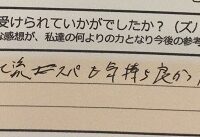 受けられていかがでしたか？（ズバ
な感想が、私達の何よりの力となり今後の参考
て流せスパも気持ち良か